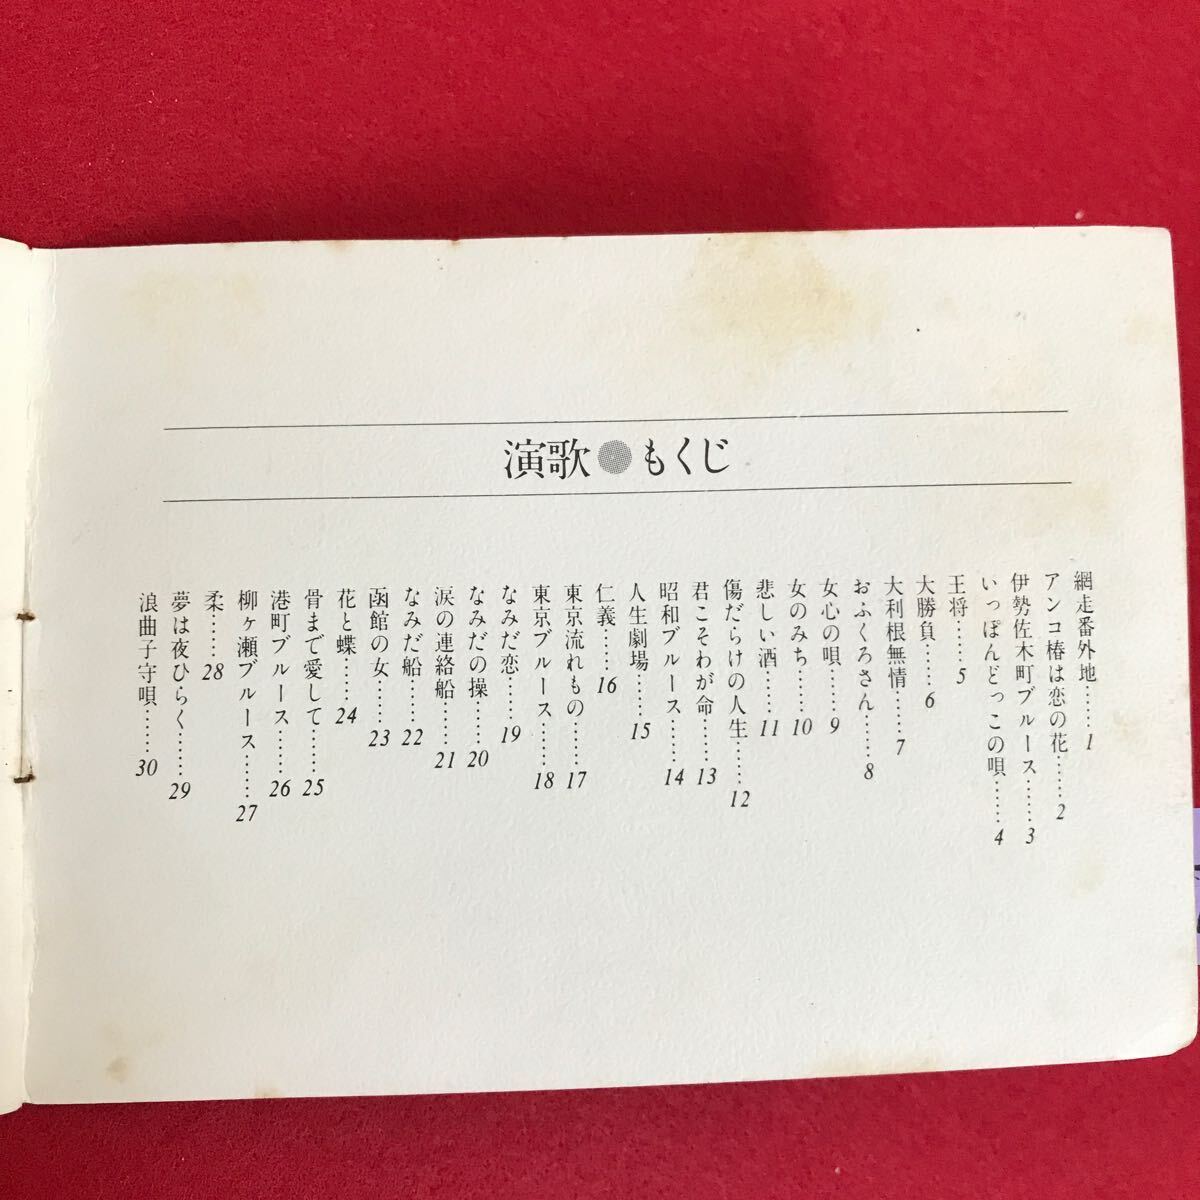 演歌●もくじ
網走番外地……1
アンコ椿は恋の花……2
伊勢佐木町ブルース……3
いっぽんどっこの唄……4
王将……5
大勝負……6
大利根無情……7
おふくろさん……8
女心の唄……9
女のみち……10
悲しい酒……11
傷だらけの人生……12
君こそわが命……13
昭和ブルース……14
人生劇場……15
仁義……16
東京流れもの……17
東京ブルース……18
なみだ恋……19
なみだの操……20
涙の連絡船……21
なみだ船……22
函館の女……23
花と蝶……24
骨まで愛して……25
港町ブルース……26
柳ヶ瀬ブルース……27
柔……28
夢は夜ひらく……29
浪曲子守唄……30